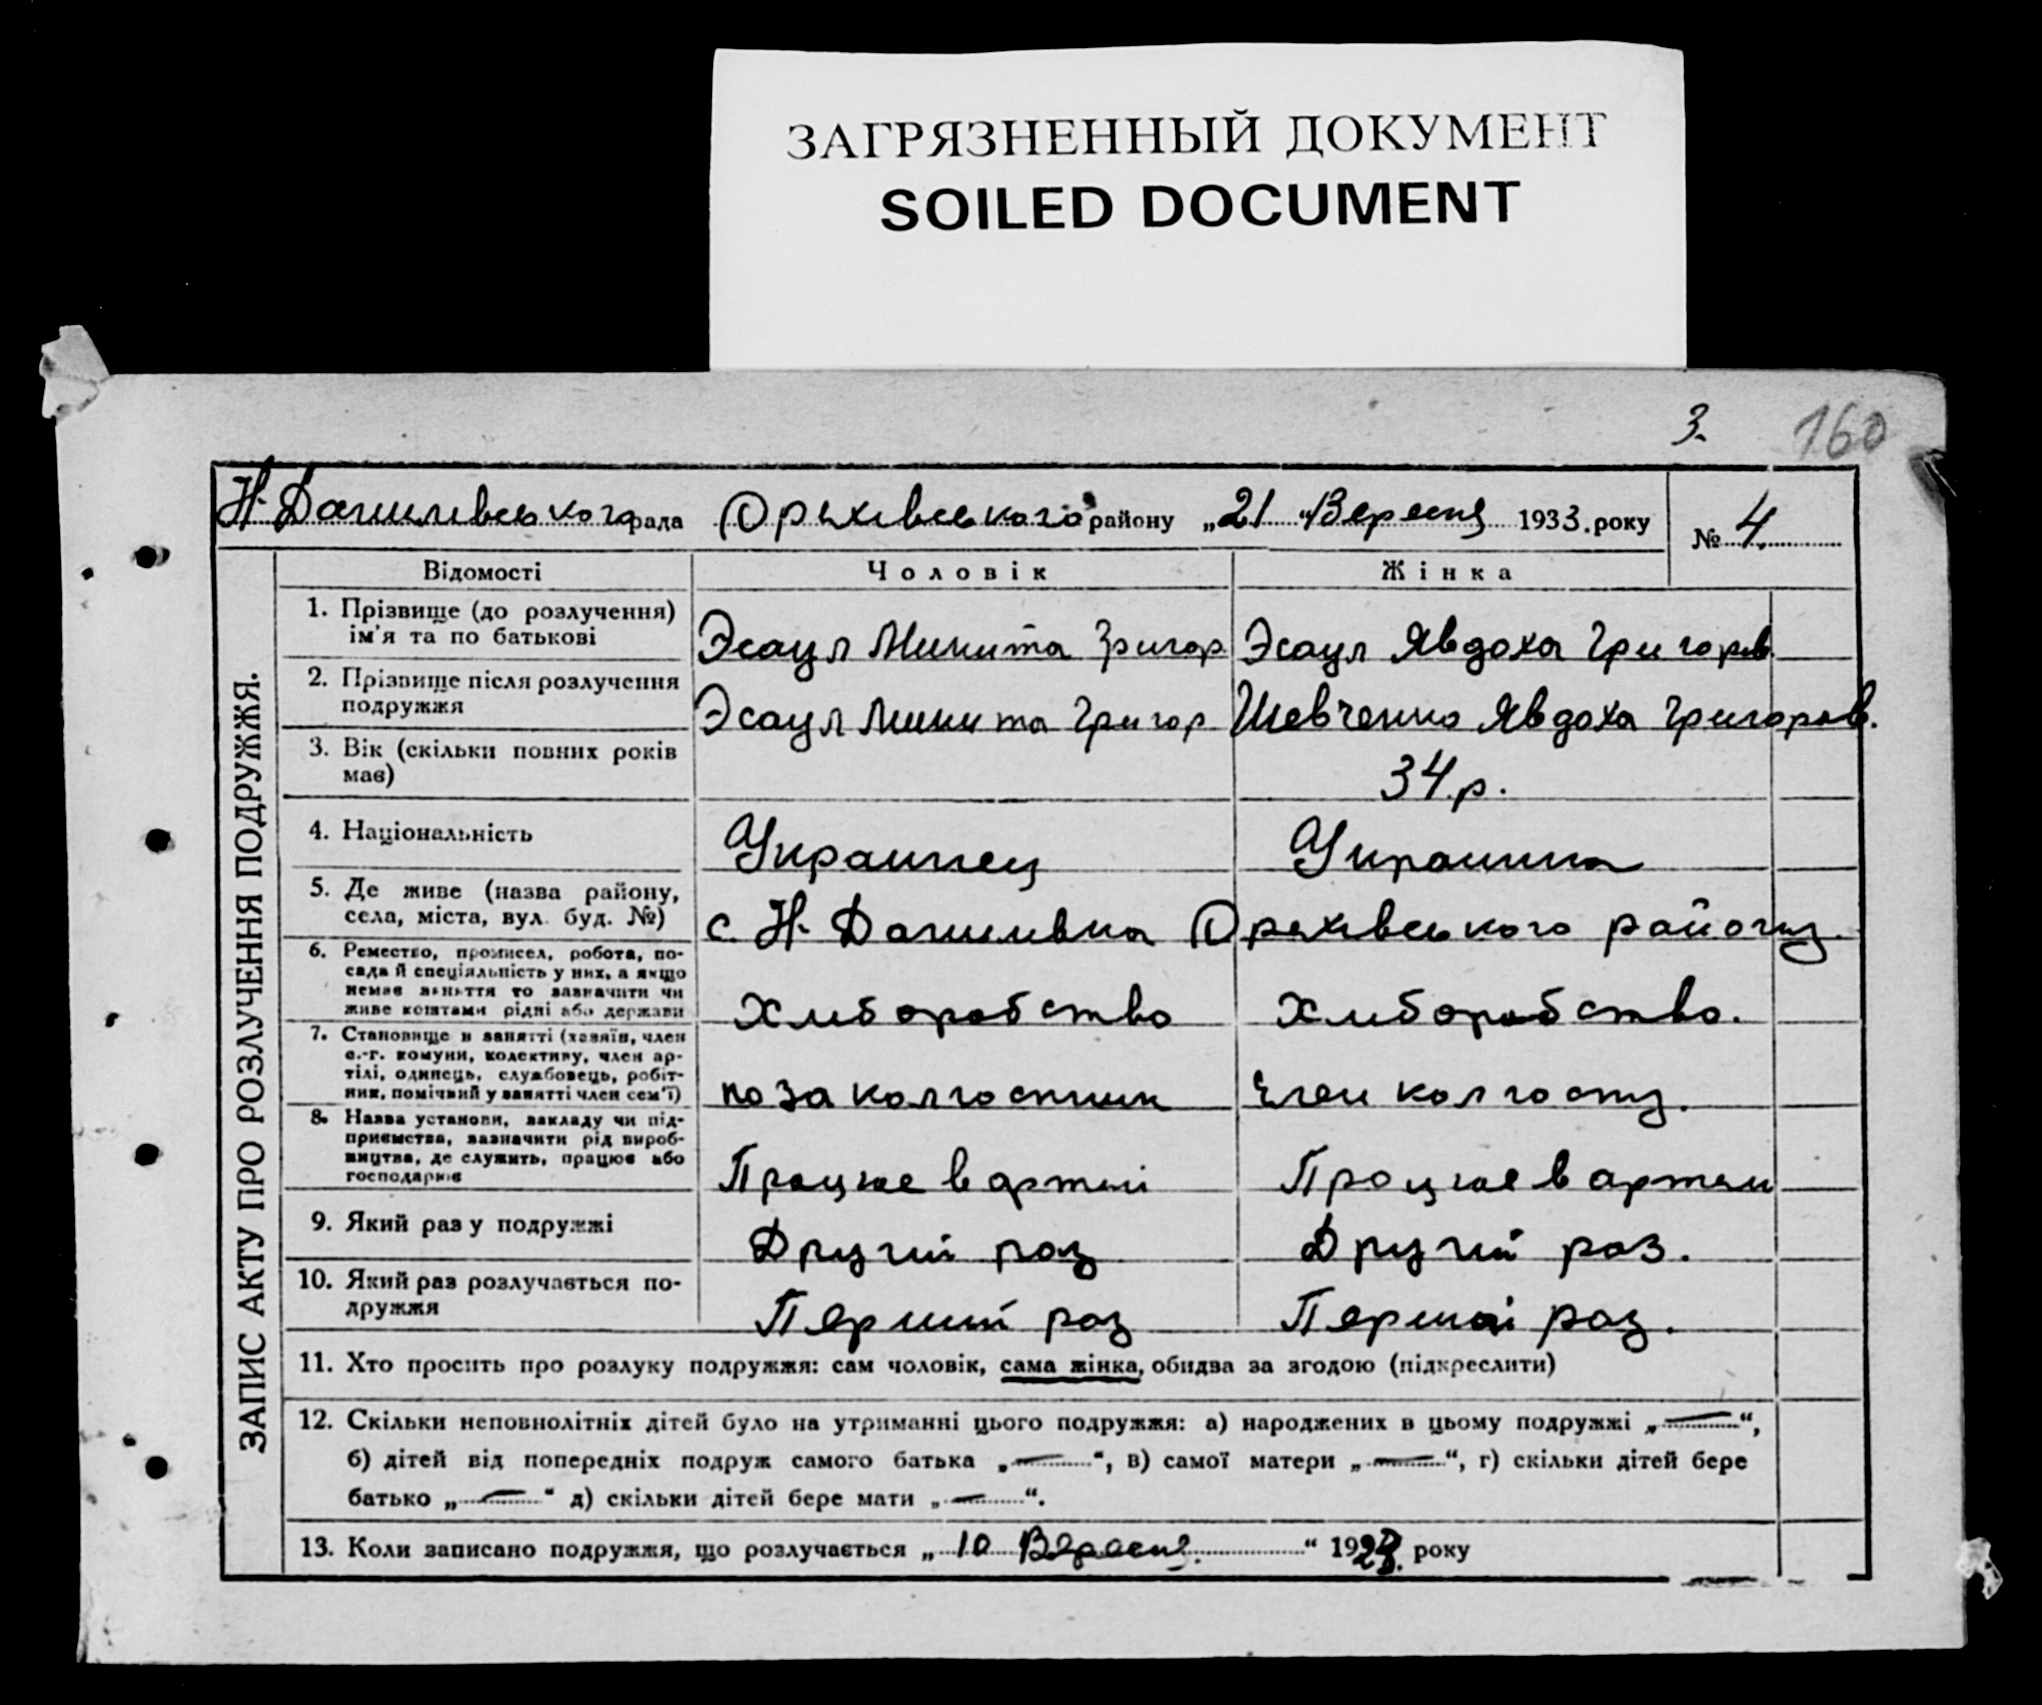 ЗАГРЯЗНЕННЫЙ ДОКУМЕНТ
SOILED DOCUMENT
3.
160
Н-Данилевського рада Орехівського району „21“ Вересня 1933. року
№ 4.
ЗАПИС АКТУ ПРО РОЗЛУЧЕННЯ ПОДРУЖЖЯ.
Відомості Чоловік Жінка
1. Прізвище (до розлучення)
ім'я та по батькові
Эсаул Микита Григор. Эсаул Явдоха Григоров.
2. Прізвище після розлучення
подружжя
Эсаул Микита Григор. Шевченко Явдоха Григоров.
3. Вік (скільки повних років
має)
34 р.
4. Національність
Украинец Украинка
5. Де живе (назва району,
села, міста, вул. буд. №)
с. Н-Данилевка Орехівського району.
6. Ремество, промисел, робота, по-
сада й спеціяльність у них, а якщо
немає заняття то зазначити чи
живе коштами рідні або держави
Хлиборобство Хлиборобство.
7. Становище в занятті (хазяїн, член
с.-г. комуни, колективу, член ар-
тілі, одинець, службовець, робіт-
ник, помічний у занятті член сем'ї)
позаколгоспник член колгоспу.
8. Назва установи, закладу чи під-
приємства, зазначити рід вироб-
ництва, де служить, працює або
господарює
Працює в артелі Працює в артели
9. Який раз у подружжі
Другий раз Другий раз.
10. Який раз розлучається по-
дружжя
Перший раз Перший раз.
11. Хто просить про розлуку подружжя: сам чоловік, сама жінка, обидва за згодою (підкреслити)
12. Скільки неповнолітніх дітей було на утриманні цього подружжя: а) народжених в цьому подружжі „—“,
б) дітей від попередніх подруж самого батька „—“, в) самої матери „—“, г) скільки дітей бере
батько „—“ д) скільки дітей бере мати „—“.
13. Коли записано подружжя, що розлучається „10 Вересня.“ року